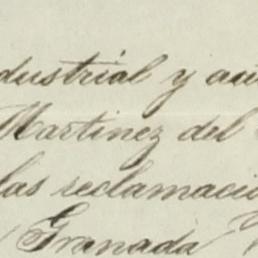 dustrial y au
Martinez del
las reclamacio
Granada